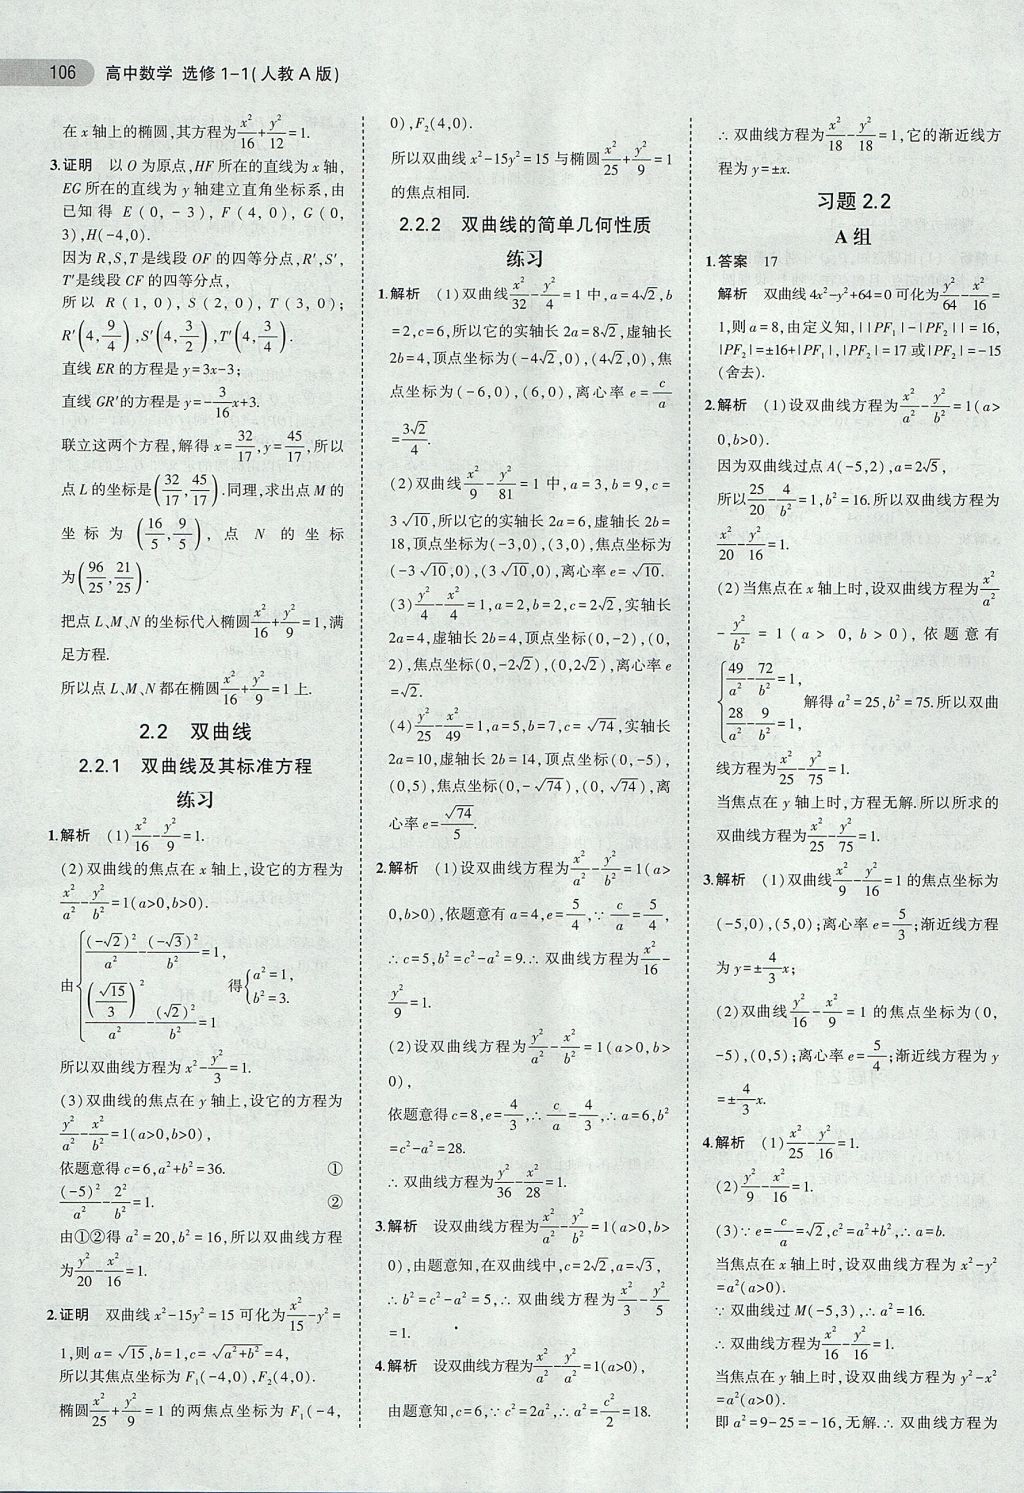 106 高中数学 选修 1-1(人教 A 版)
在 x 轴上的椭圆,其方程为x²/16+y²/12=1.
3.证明 以 O 为原点,HF 所在的直线为 x 轴,
EG 所在的直线为 y 轴建立直角坐标系,由
已知得 E(0,-3),F(4,0),G(0,
3),H(-4,0).
因为 R,S,T 是线段 OF 的四等分点,R′,S′,
T′是线段 CF 的四等分点,
所以 R(1,0),S(2,0),T(3,0);
R′(4,9/4),S′(4,3/2),T′(4,3/4).
直线 ER 的方程是 y=3x-3;
直线 GR′的方程是 y=-3/16x+3.
联立这两个方程,解得 x=32/17,y=45/17,所以
点 L 的坐标是(32/17,45/17).同理,求出点 M 的
坐标为(16/5,9/5),点 N 的坐标
为(96/25,21/25).
把点 L、M、N 的坐标代入椭圆x²/16+y²/9=1,满
足方程.
所以点 L、M、N 都在椭圆x²/16+y²/9=1 上.
2.2 双曲线
2.2.1 双曲线及其标准方程
练习
1.解析 (1)x²/16-y²/9=1.
(2)双曲线的焦点在 x 轴上,设它的方程为
x²/a²-y²/b²=1(a>0,b>0).
由{(-√2)²/a²-(-√3)²/b²=1, (√15/3)²/a²-(√2)²/b²=1 得{a²=1, b²=3.
所以双曲线方程为 x²-y²/3=1.
(3)双曲线的焦点在 y 轴上,设它的方程为
y²/a²-x²/b²=1(a>0,b>0),
依题意得 c=6,a²+b²=36. ①
(-5)²/a²-2²/b²=1. ②
由①②得 a²=20,b²=16,所以双曲线方程
为y²/20-x²/16=1.
2.证明 双曲线 x²-15y²=15 可化为x²/15-y²=
1,则 a=√15,b=1,c=√(a²+b²)=4,
所以其焦点坐标为 F₁(-4,0),F₂(4,0).
椭圆x²/25+y²/9=1 的两焦点坐标为 F₁(-4,
0),F₂(4,0).
所以双曲线 x²-15y²=15 与椭圆x²/25+y²/9=1
的焦点相同.
2.2.2 双曲线的简单几何性质
练习
1.解析 (1)双曲线x²/32-y²/4=1 中,a=4√2,b
=2,c=6,所以它的实轴长 2a=8√2,虚轴长
2b=4,顶点坐标为(-4√2,0),(4√2,0),焦
点坐标为(-6,0),(6,0),离心率 e=c/a
=3√2/4.
(2)双曲线x²/9-y²/81=1 中,a=3,b=9,c=
3√10,所以它的实轴长 2a=6,虚轴长 2b=
18,顶点坐标为(-3,0),(3,0),焦点坐标为
(-3√10,0),(3√10,0),离心率 e=√10.
(3)y²/4-x²/4=1,a=2,b=2,c=2√2,实轴长
2a=4,虚轴长 2b=4,顶点坐标(0,-2),(0,
2),焦点坐标(0,-2√2),(0,2√2),离心率 e
=√2.
(4)y²/25-x²/49=1,a=5,b=7,c=√74,实轴长
2a=10,虚轴长 2b=14,顶点坐标(0,-5),
(0,5),焦点坐标(0,-√74),(0,√74),离
心率 e=√74/5.
2.解析 (1)设双曲线方程为x²/a²-y²/b²=1(a>
0,b>0),依题意有 a=4,e=5/4,∵c/a=5/4,
∴c=5,b²=c²-a²=9.∴双曲线方程为x²/16-
y²/9=1.
(2)设双曲线方程为y²/a²-x²/b²=1(a>0,b>
0),
依题意得 c=8,e=4/3,∴c/a=4/3,∴a=6,b²
=c²-a²=28.
∴双曲线方程为y²/36-x²/28=1.
3.解析 设双曲线方程为x²/a²-y²/b²=1(a>0,b>
0),由题意知,在双曲线中,c=2√2,a=√3,
∴b²=c²-a²=5,∴双曲线方程为x²/3-y²/5
=1.
4.解析 设双曲线方程为x²/a²-y²/a²=1(a>0),
由题意知,c=6,∵c²=2a²,∴a²=c²/2=18.
∴双曲线方程为x²/18-y²/18=1,它的渐近线方
程为 y=±x.
习题 2.2
A 组
1.答案 17
解析 双曲线 4x²-y²+64=0 可化为y²/64-x²/16=
1,则 a=8,由定义知,||PF₁|-|PF₂||=16,
|PF₂|=±16+|PF₁|,|PF₂|=17 或|PF₂|=-15
(舍去).
2.解析 (1)设双曲线方程为x²/a²-y²/b²=1(a>
0,b>0).
因为双曲线过点 A(-5,2),a=2√5,
所以25/20-4/b²=1,b²=16.所以双曲线方程为
x²/20-y²/16=1.
(2)当焦点在 x 轴上时,设双曲线方程为x²/a²
-y²/b²=1(a>0,b>0),依题意有
{49/a²-72/b²=1, 28/a²-9/b²=1, 解得 a²=25,b²=75.所以双曲
线方程为x²/25-y²/75=1.
当焦点在 y 轴上时,方程无解.所以所求的
双曲线方程为x²/25-y²/75=1.
3.解析 (1)双曲线x²/9-y²/16=1 的焦点坐标为
(-5,0),(5,0);离心率 e=5/3;渐近线方程
为 y=±4/3x;
(2)双曲线y²/16-x²/9=1 的焦点坐标为(0,
-5),(0,5);离心率 e=5/4;渐近线方程为 y
=±4/3x.
4.解析 (1)x²/25-y²/16=1.
(2)y²/9-x²/16=1.
(3)∵e=c/a=√2,c²=a²+b²,∴a=b.
当焦点在 x 轴上时,设双曲线方程为 x²-y²
=a²(a>0).
∵双曲线过 M(-5,3),∴a²=16.
∴双曲线方程为x²/16-y²/16=1.
当焦点在 y 轴上时,设双曲线方程为 y²-x²
=a²(a>0).
即 a²=9-25=-16,无解.∴双曲线方程为